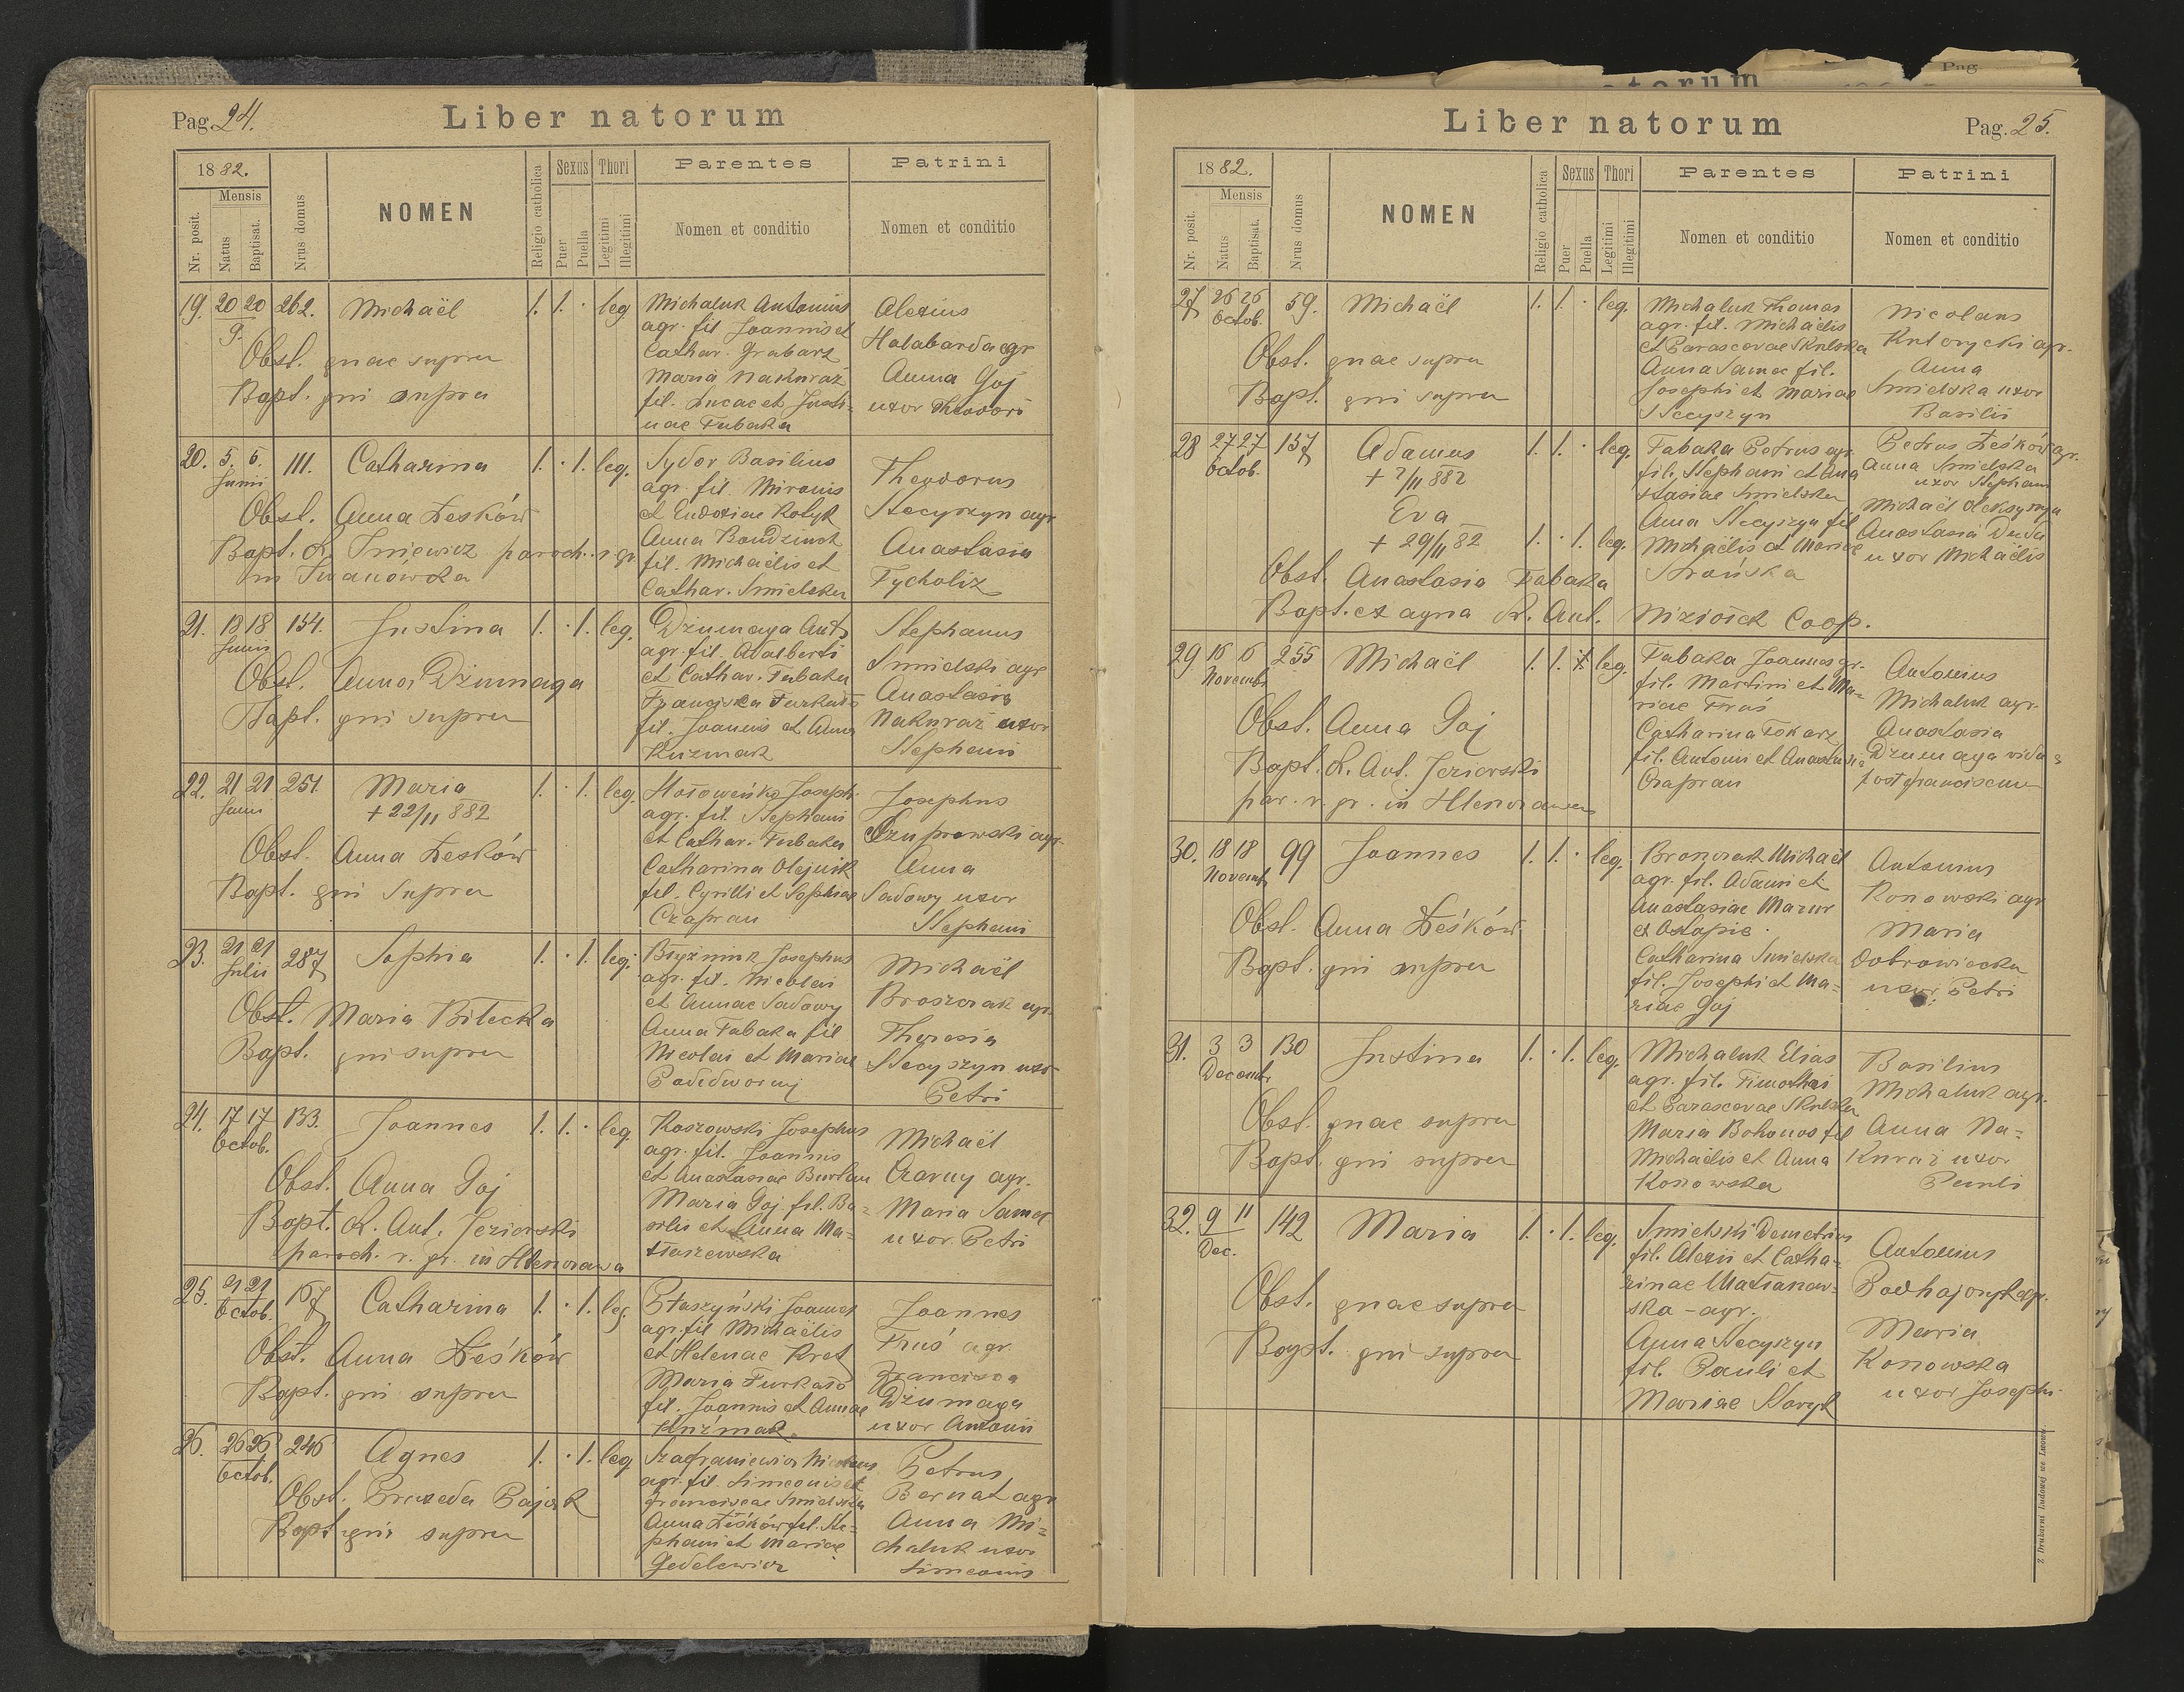 Pag. 24.
Liber natorum
1882.
Mensis
Nr. posit.
Natus
Baptisat.
Nrus domus
NOMEN
Religio catholica
Sexus
Puer
Puella
Thori
Legitimi
Illegitimi
Parentes
Nomen et conditio
Patrini
Nomen et conditio
19. 20 20 262. Michaël 1. 1. · leg
9.
Obst. quae supra
Bapt. qui supra
Michaluk Antonius
agr. fil. Joannis et
Cathar. Grabarz
Maria Nakuraż
fil. Lucae et Justi-
nae Tabaka
Alexius
Halabarda agr
Anna Goj
uxor Theodori
20. 5. 6. 111. Catharina 1. · 1. leg.
Junii
Obst. Anna Leśków
Bapt. L. Śniewicz paroch. r. gr.
in Iwanówka
Sydor Basilius
agr. fil. Mironis
et Eudoxiae Kotyk
Anna
fil. Michaëlis et
Cathar. Smielska
Theodorus
Stecyszyn agr
Anastasia
Tycholiz
21. 18 18 154. Justina 1. · 1. leg.
Junii
Obst. Anna Dżumaga
Bapt. qui supra
Dżumaga Ant.
agr. fil. Adalberti
et Cathar. Tabaka
Franciska Turkało
fil. Joannis et Anna
Kuźmak
Stephanus
Smielski agr
Anastasia
Nakuraż uxor
Stephani
22. 21 21 251. Maria 1. · 1. leg.
Junii
+ 22/11 882
Obst. Anna Leśków
Bapt. qui supra
Hołoweńko Joseph.
agr. fil. Stephani
et Cathar. Tabaka
Catharina Olejnik
fil. Cyrilli et Sophiae
Czapran
Josephus
agr.
Anna
Sadowy uxor
Stephani
23. 21 21 287 Sophia 1. · 1. leg.
Julii
Obst. Maria Bilecka
Bapt. qui supra
Josephus
agr. fil. Nicolai
et Annae Sadowy
Anna Tabaka fil
Nicolai et Mariae
Podedworny
Michaël
Broszczak agr.
Theresia
Stecyszyn uxor
Petri
24. 17 17 133. Joannes 1. 1. · leg.
Octob.
Obst. Anna Goj
Bapt. L. Ant. Jezierski
paroch. r. gr. in
Koszowski Josephus
agr. fil. Joannis
et Anastasiae Burtan
Maria Goj fil. Ba-
silii et Anna Ma-
tłaszewska
Michaël
Czarny agr.
Maria Samek
uxor Petri
25. 21 21 157 Catharina 1. · 1. leg.
Octob.
Obst. Anna Leśków
Bapt. qui supra
Błaszyński Joannes
agr. fil Michaëlis
et Helenae Kret
Maria Turkało
fil. Joannis et Annae
Kuźmak.
Joannes
Truś agr.
Francisca
Dżumaga
uxor Antonii
26. 26 26 246 Agnes 1. · 1. leg
Octob.
Obst. Pajak
Bapt. qui supra
Szafraniewicz Nicolaus
agr. fil. Simeonis et
Franciscae Smielska
Anna Leśków fil. Ste-
phani et Mariae
Gedelewicz
Petrus
Bernat agr
Anna Mi-
chaluk uxor
Simeonis
Liber natorum
Pag. 25.
1882.
Mensis
Nr. posit.
Natus
Baptisat.
Nrus domus
NOMEN
Religio catholica
Sexus
Puer
Puella
Thori
Legitimi
Illegitimi
Parentes
Nomen et conditio
Patrini
Nomen et conditio
27 26 26 59. Michaël 1. 1. · leg.
Octob.
Obst. quae supra
Bapt. qui supra
Michaluk Thomas
agr. fil. Michaëlis
et Parascevae Skulska
Anna Samek fil.
Josephi et Mariae
Stecyszyn
Nicolaus
Kutorycki agr.
Anna
Smielska uxor
Basilii
28 27 27 157 Adamus 1. 1. · leg.
Octob.
+ 7/11 882
Eva
+ 29/11 82 1. · 1. leg.
Obst. Anastasia Tabaka
Bapt. ex aqua L. Ant. Niziołek Coop.
Tabaka Petrus agr.
fil. Stephani et Ana
stasiae Smielska
Anna Stecyszyn fil
Michaëlis et Mariae
Strońska
Petrus Leśków agr.
Anna Smielska
uxor Stephani
Michaël Oleksyszyn
Anastasia Duda
uxor Michaëlis
29 16 16 255 Michaël 1. 1. leg.
Novemb.
Obst. Anna Goj
Bapt. L. Ant. Jezierski
par. r. gr. in
Tabaka Joannes gr.
fil. Martini et Ma-
riae Truś
Catharina Tokarz
fil. Antonii et Anastasia
Czapran
Antonius
Michaluk agr.
Anastasia
Dżumaga vidua
post Franciscum
30. 18 18 99 Joannes 1. 1. · leg.
Novemb.
Obst. Anna Leśków
Bapt. qui supra
Michaël
agr. fil. Adami et
Anastasiae Mazur
ex Ostapie.
Catharina Smielska
fil. Josephi et Ma-
riae Goj
Antonius
Konowski agr
Maria
Dobrowiecka
uxor Petri
31. 3 3 130 Justina 1. · 1. leg.
Decemb.
Obst. quae supra
Bapt. qui supra
Michaluk Elias
agr. fil. Timothei
et Parascevae Skulska
Maria Bohonos fil
Michaëlis et Anna
Konowska
Basilius
Michaluk agr.
Anna Na-
kuraż uxor
Pauli
32. 9 11 142 Maria 1. · 1. leg.
Dec.
Obst. quae supra
Bapt. qui supra
Smielski Demetrius
fil. Alexii et Catha-
rinae Matianow-
ska - agr.
Anna Stecyszyn
fil. Pauli et
Mariae Haryk
Antonius
Podhajonyk agr.
Maria
Konowska
uxor Josephi
Z Drukarni Ludowej we Lwowie